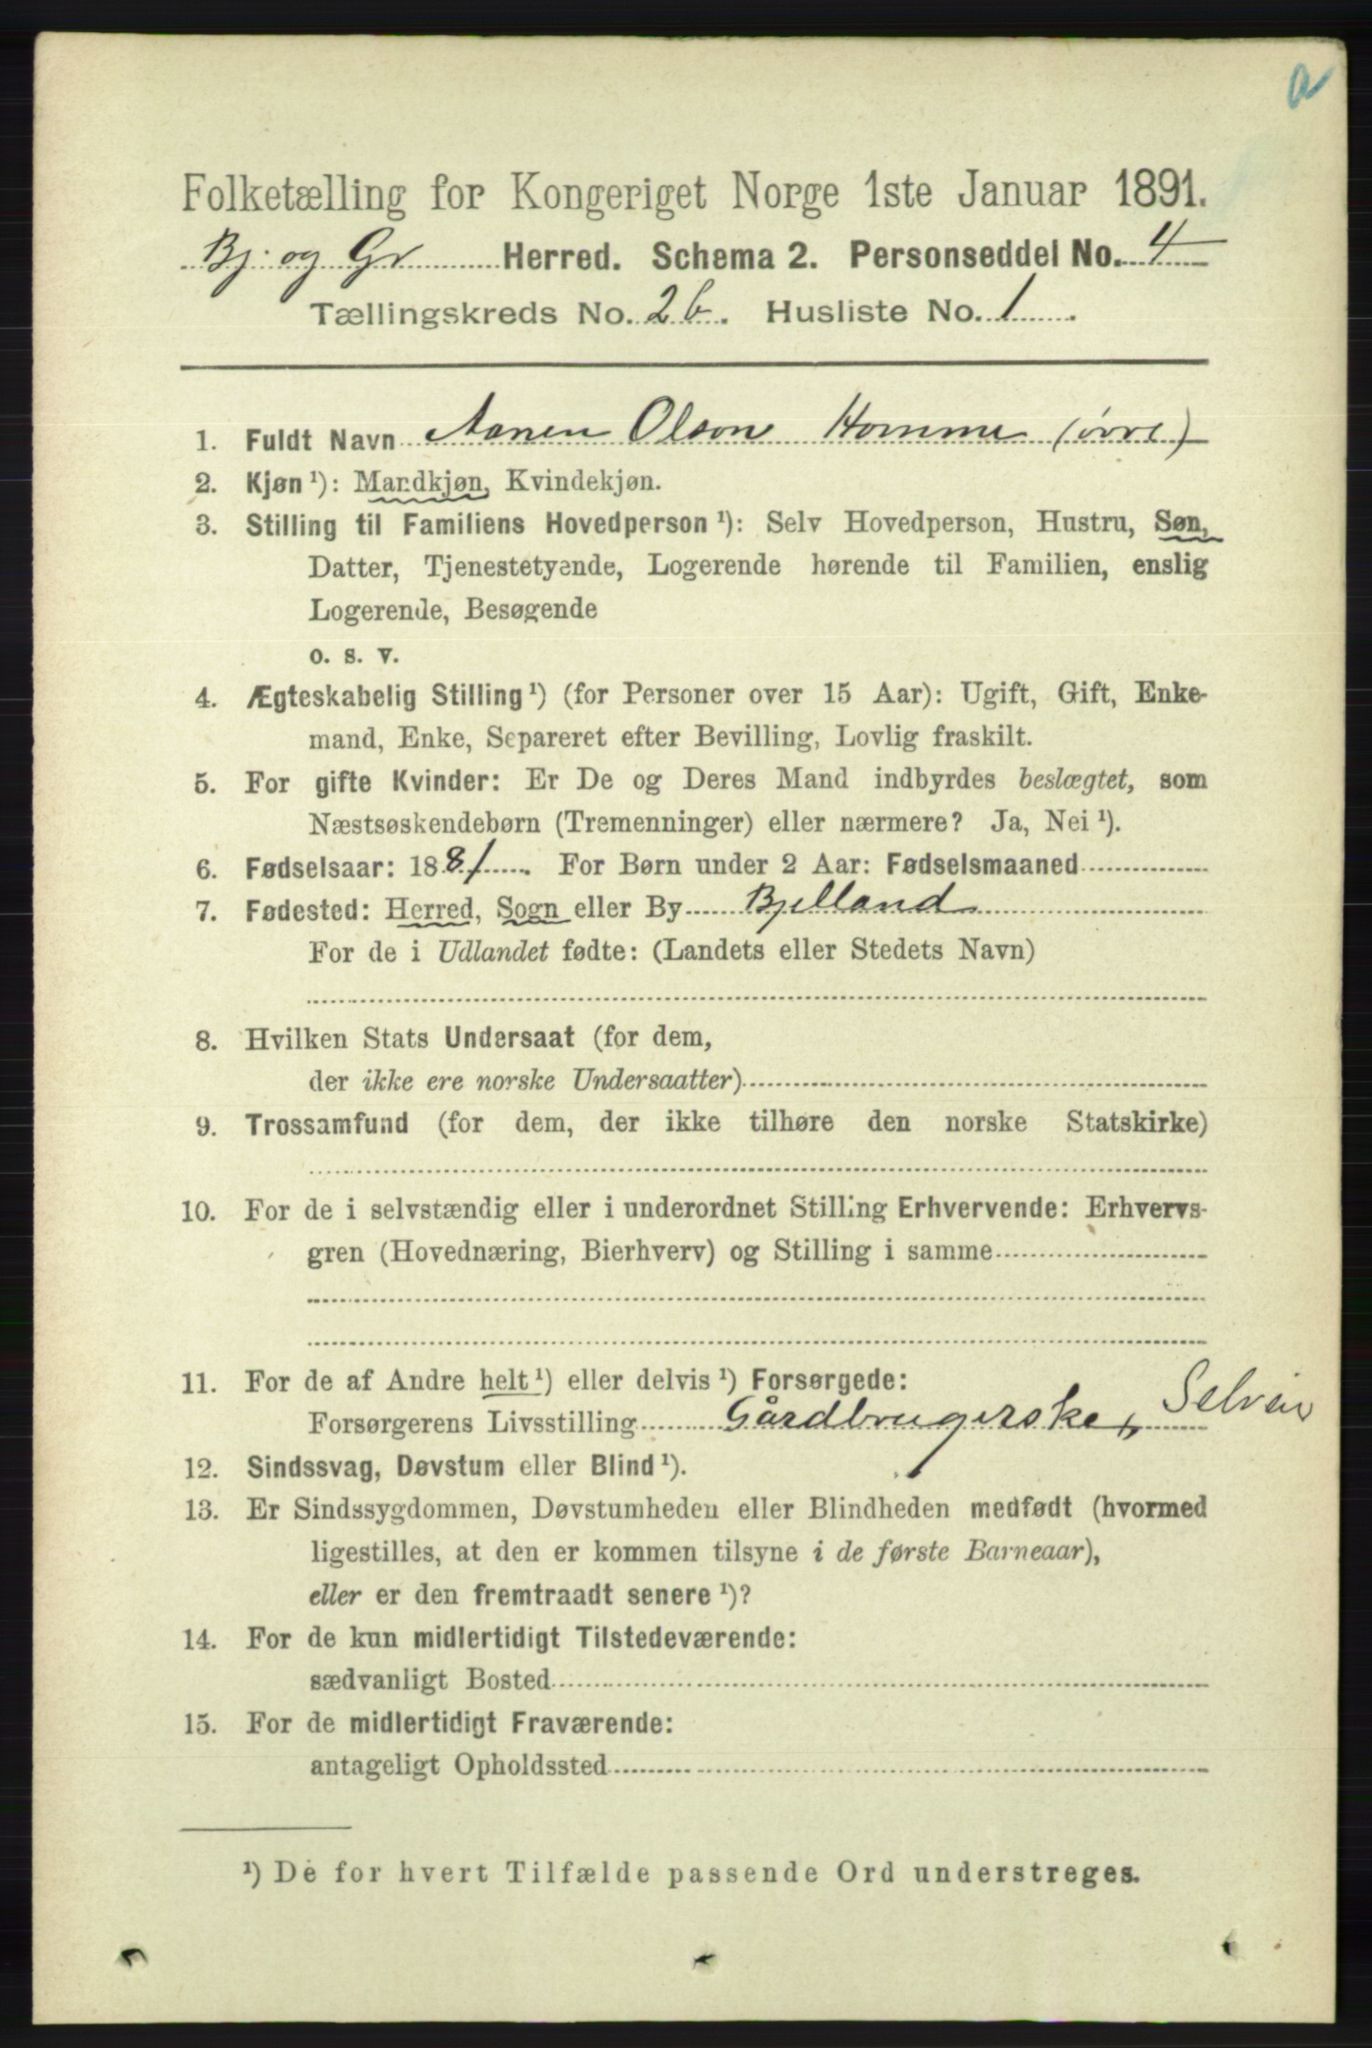 a
Folketælling for Kongeriget Norge 1ste Januar 1891.
Bj. og Gr Herred. Schema 2. Personseddel No. 4
Tællingskreds No. 2b. Husliste No. 1.
1. Fuldt Navn Aanen Olson Homme (øvre)
2. Kjøn ¹): Mandkjøn, Kvindekjøn.
3. Stilling til Familiens Hovedperson ¹): Selv Hovedperson, Hustru, Søn,
Datter, Tjenestetyende, Logerende hørende til Familien, enslig
Logerende, Besøgende
o. s. v.
4. Ægteskabelig Stilling ¹) (for Personer over 15 Aar): Ugift, Gift, Enke-
mand, Enke, Separeret efter Bevilling, Lovlig fraskilt.
5. For gifte Kvinder: Er De og Deres Mand indbyrdes beslægtet, som
Næstsøskendebørn (Tremenninger) eller nærmere? Ja, Nei ¹).
6. Fødselsaar: 1881. For Børn under 2 Aar: Fødselsmaaned
7. Fødested: Herred, Sogn eller By Bjelland
For de i Udlandet fødte: (Landets eller Stedets Navn)
8. Hvilken Stats Undersaat (for dem,
der ikke ere norske Undersaatter)
9. Trossamfund (for dem, der ikke tilhøre den norske Statskirke)
10. For de i selvstændig eller i underordnet Stilling Erhvervende: Erhvervs-
gren (Hovednæring, Bierhverv) og Stilling i samme
11. For de af Andre helt ¹) eller delvis ¹) Forsørgede:
Forsørgerens Livsstilling Gårdbrugerske, Selveier
12. Sindssvag, Døvstum eller Blind ¹).
13. Er Sindssygdommen, Døvstumheden eller Blindheden medfødt (hvormed
ligestilles, at den er kommen tilsyne i de første Barneaar),
eller er den fremtraadt senere ¹)?
14. For de kun midlertidigt Tilstedeværende:
sædvanligt Bosted
15. For de midlertidigt Fraværende:
antageligt Opholdssted
¹) De for hvert Tilfælde passende Ord understreges.